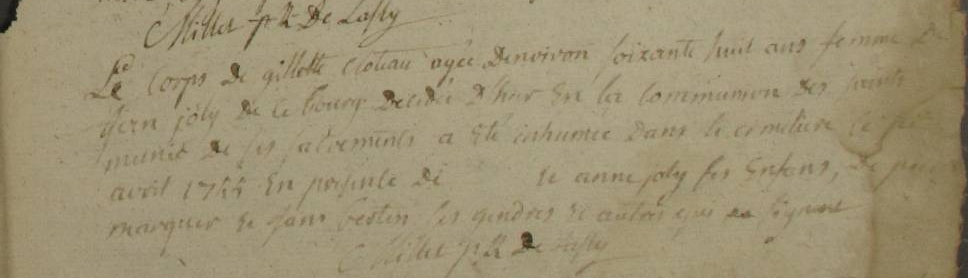 Millet p R De Lassy
Le Corps De gillette Cloteau agée Denviron soixante huit ans femme De
jean joly De ce bourg Decedée D'hier En la Communion Des saints
munie De ses sacrements a eté inhumée dans le cimetiere ce
avril En presence de et anne joly ses Enfans, De
marquer et jean ses gendres et autres qui ne signent
Millet p R De Lassy